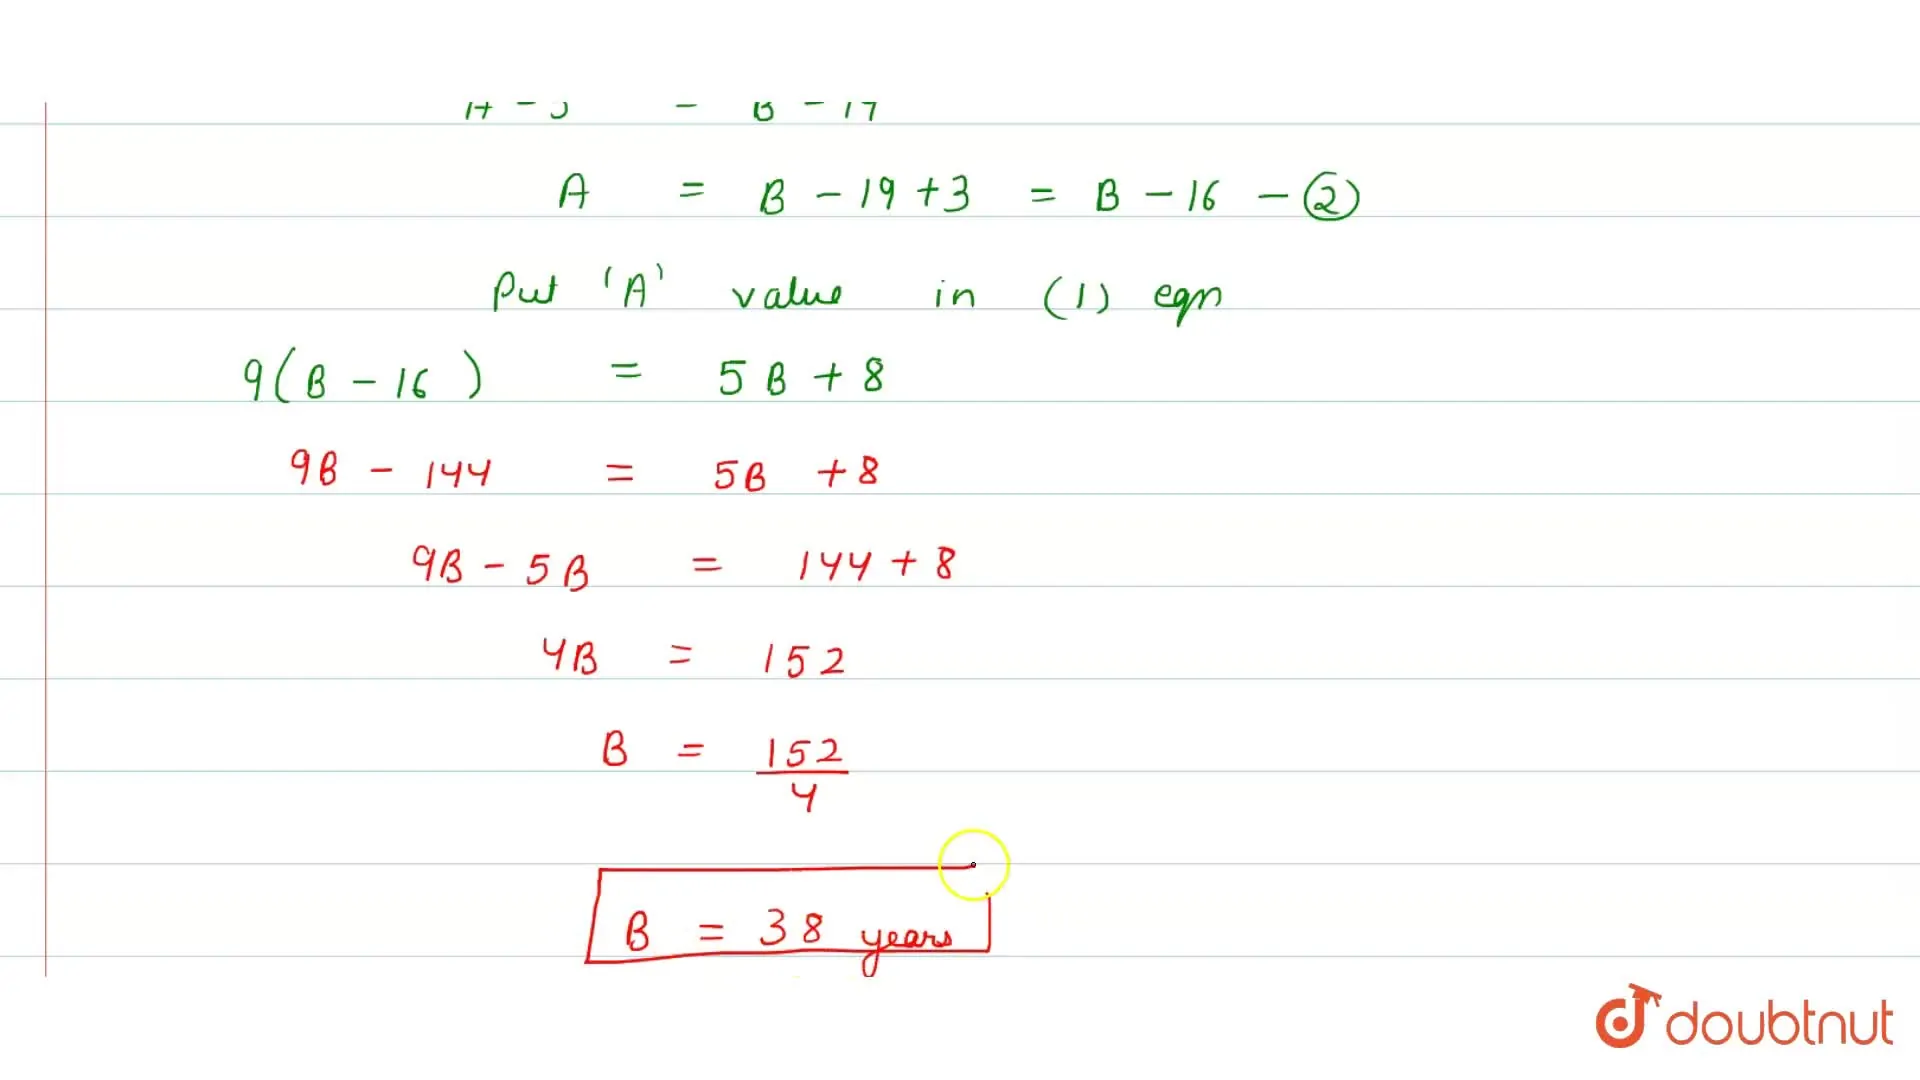 A = B - 19 + 3 = B - 16 - ②
Put 'A' value in (1) eqn
9(B - 16) = 5B + 8
9B - 144 = 5B + 8
9B - 5B = 144 + 8
4B = 152
B = 152/4
B = 38 years
doubtnut